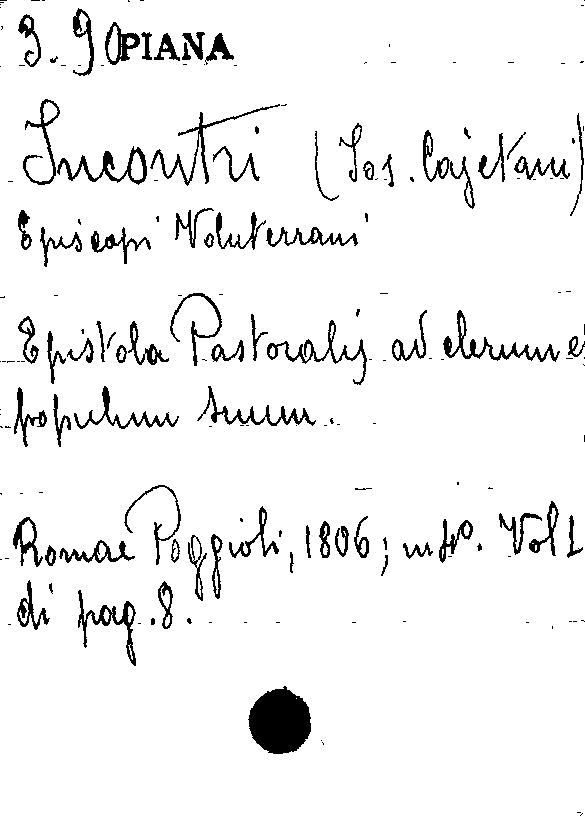 3. 90 PIANA
Incontri (Ios. Cajetani)
Episcopi Volaterrani
Epistola Pastoralis ad clerum e
populum suum.
Romae Poggioli, 1806; in 4º. Vol 1
di pag. 8.